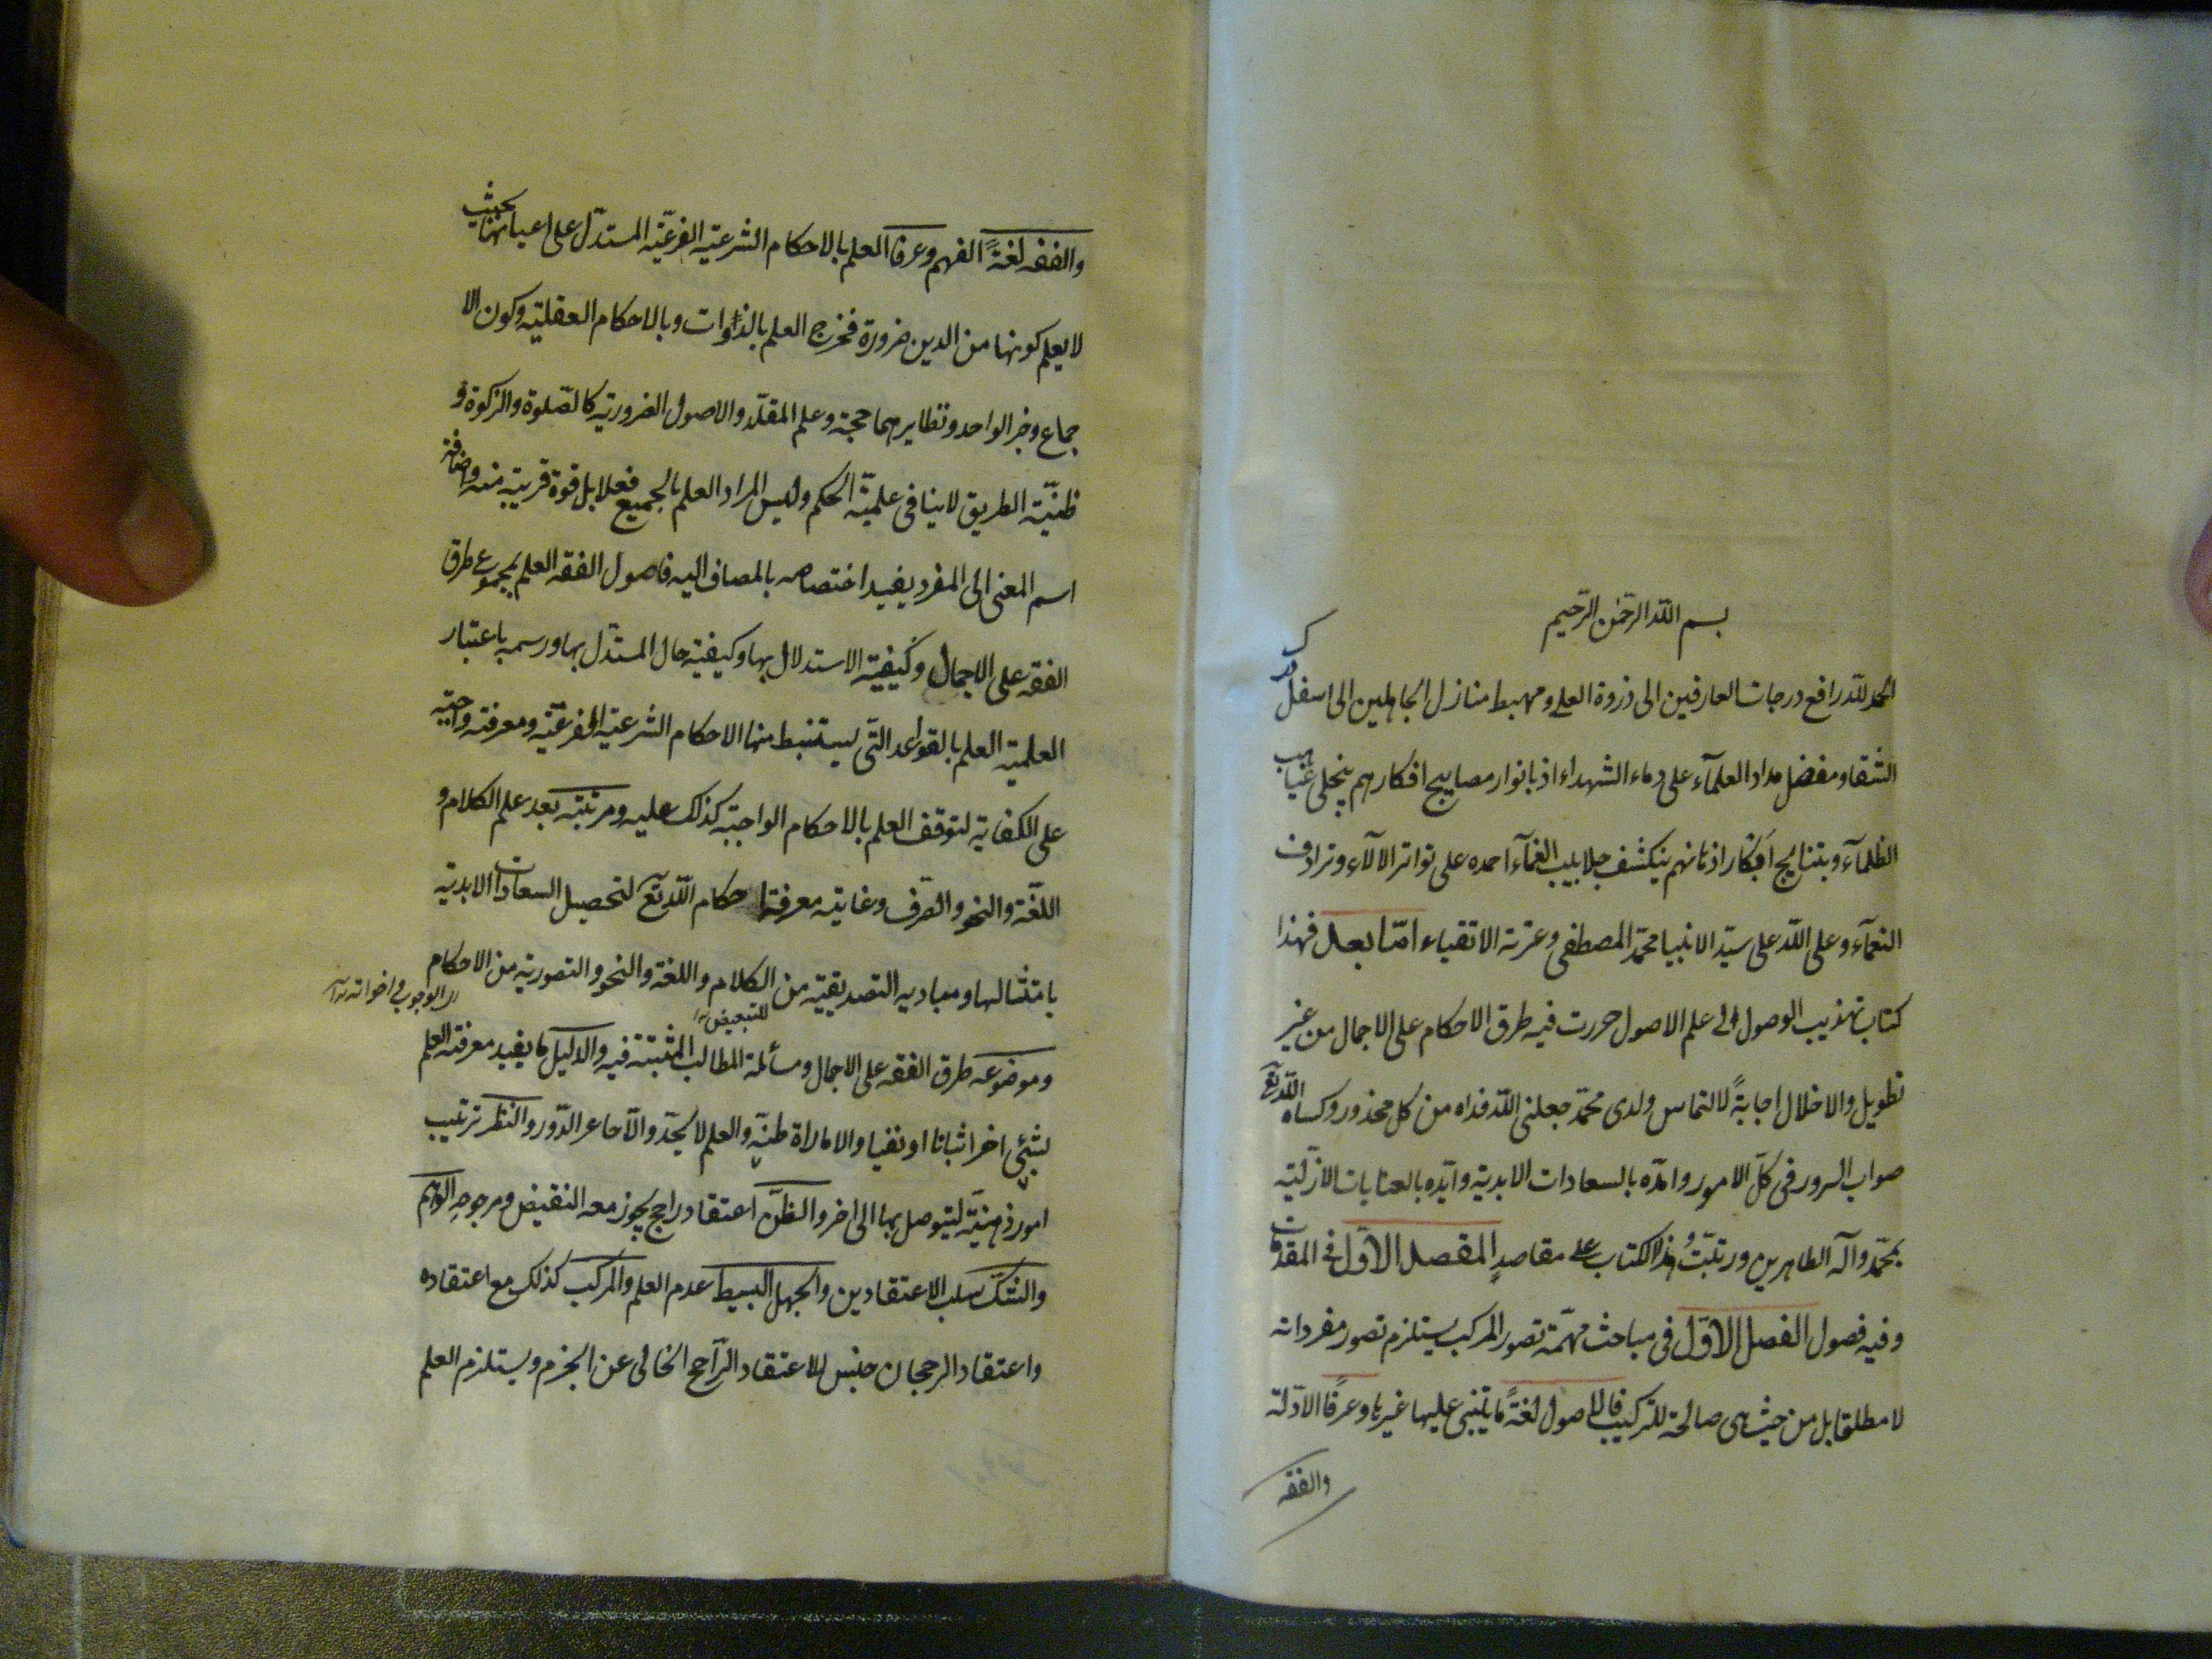 بسم الله الرحمن الرحيم
الحمد لله رافع درجات العارفين الى ذروة العلى ومهبط منازل الجاهلين الى اسفل درك
الشقا ومفضل مداد العلمآء على دماء الشهداء اذ بانوار مصابيح افكارهم ينجلى غياهب
الظلمآء وبنتايج افكار اذهانهم ينكشف جلابيب الغمآء احمده على تواتر الالآء وترادف
النعمآء وعلى الله على سيّد الانبيا محمّد المصطفى وعترته الاتقياء امّا بعد فهذا
كتاب تهذيب الوصول الى علم الاصول حررت فيه طرق الاحكام على الاجمال من غير
تطويل والاخلال اجابةً لالتماس ولدى محمّد جعلنى اللّه فداه من كل محذور وكساه اللّه تع
صواب السرور فى كلّ الامور وامدّه بالسعادات الابدية وايّده بالعنايات الازليّة
بمحمّد وآله الطاهرين ورتبّتُ هذا الكتاب على مقاصدٍ المقصد الاوّل فى المقدمات
وفيه فصول الفصل الاوّل فى مباحث مهمّة تصور المركب يستلزم تصور مفرداته
لا مطلقا بل من حيث هى صالحة للتركيب فالاصول لغةً ما يبتنى عليها غيرها وعرفًا الادّلة
والفقه
والفقه لغةً الفهم وعرفا العلم بالاحكام الشرعيّة الفرعيّة المستدّل على اعيانها بحيث
لا يعلم كونها من الدين ضرورة فخرج العلم بالذوات وبالاحكام العقليّة وكون الا
جماع وخبر الواحد ونظايرهما حجة وعلم المقلّد والاصول الضرورية كالصّلوة والزكوة و
ظنيّة الطريق لا ينافى علميّة الحكم وليس المراد العلم بالجميع فعلا بل قوة قريبة منه واضافة
اسم المعنى الى المفرد يفيد اختصاصه بالمضاف اليه فاصول الفقه العلم بمجموع طرق
الفقه على الاجمال وكيفية الاستدلال بها وكيفية حال المستدّل بها ورسمه باعتبار
العلمية العلم بالقواعد التّى يستنبط منها الاحكام الشرعيّة الفرعيّة ومعرفته واجبة
على الكفاية لتوقف العلم بالاحكام الواجبة كذلك عليه ومرتبته بعد علم الكلام و
اللّغة والنحو والصّرف وغايته معرفة احكام اللّه تع لتحصيل السعادات الابدية
بامتثالها ومباديه التصديقية من الكلام واللغة والنحو والتصورية من الاحكام
للتبعيض
وموضوعه طرق الفقه على الاجمال ومسائله المطالب المثبتة فيه والدليل ما يفيد معرفته العلم
بشئى اخر اثباتا او نفيا والامارة ظنيّة والعلم لا يحدّ والّا جاء الدّور والنظر ترتيب
امور ذهنيّة ليتوصل بها الى اخر والظنّ اعتقاد راجح يجوز معه النقيض ومرجوحه الوهم
والشكّ سلب الاعتقادين والجهل البسيط عدم العلم والمركب كذلك مع اعتقاده
واعتقاد الرجحان جنس للاعتقاد الرّاجح الخالى عن الجزم ويستلزم العلم